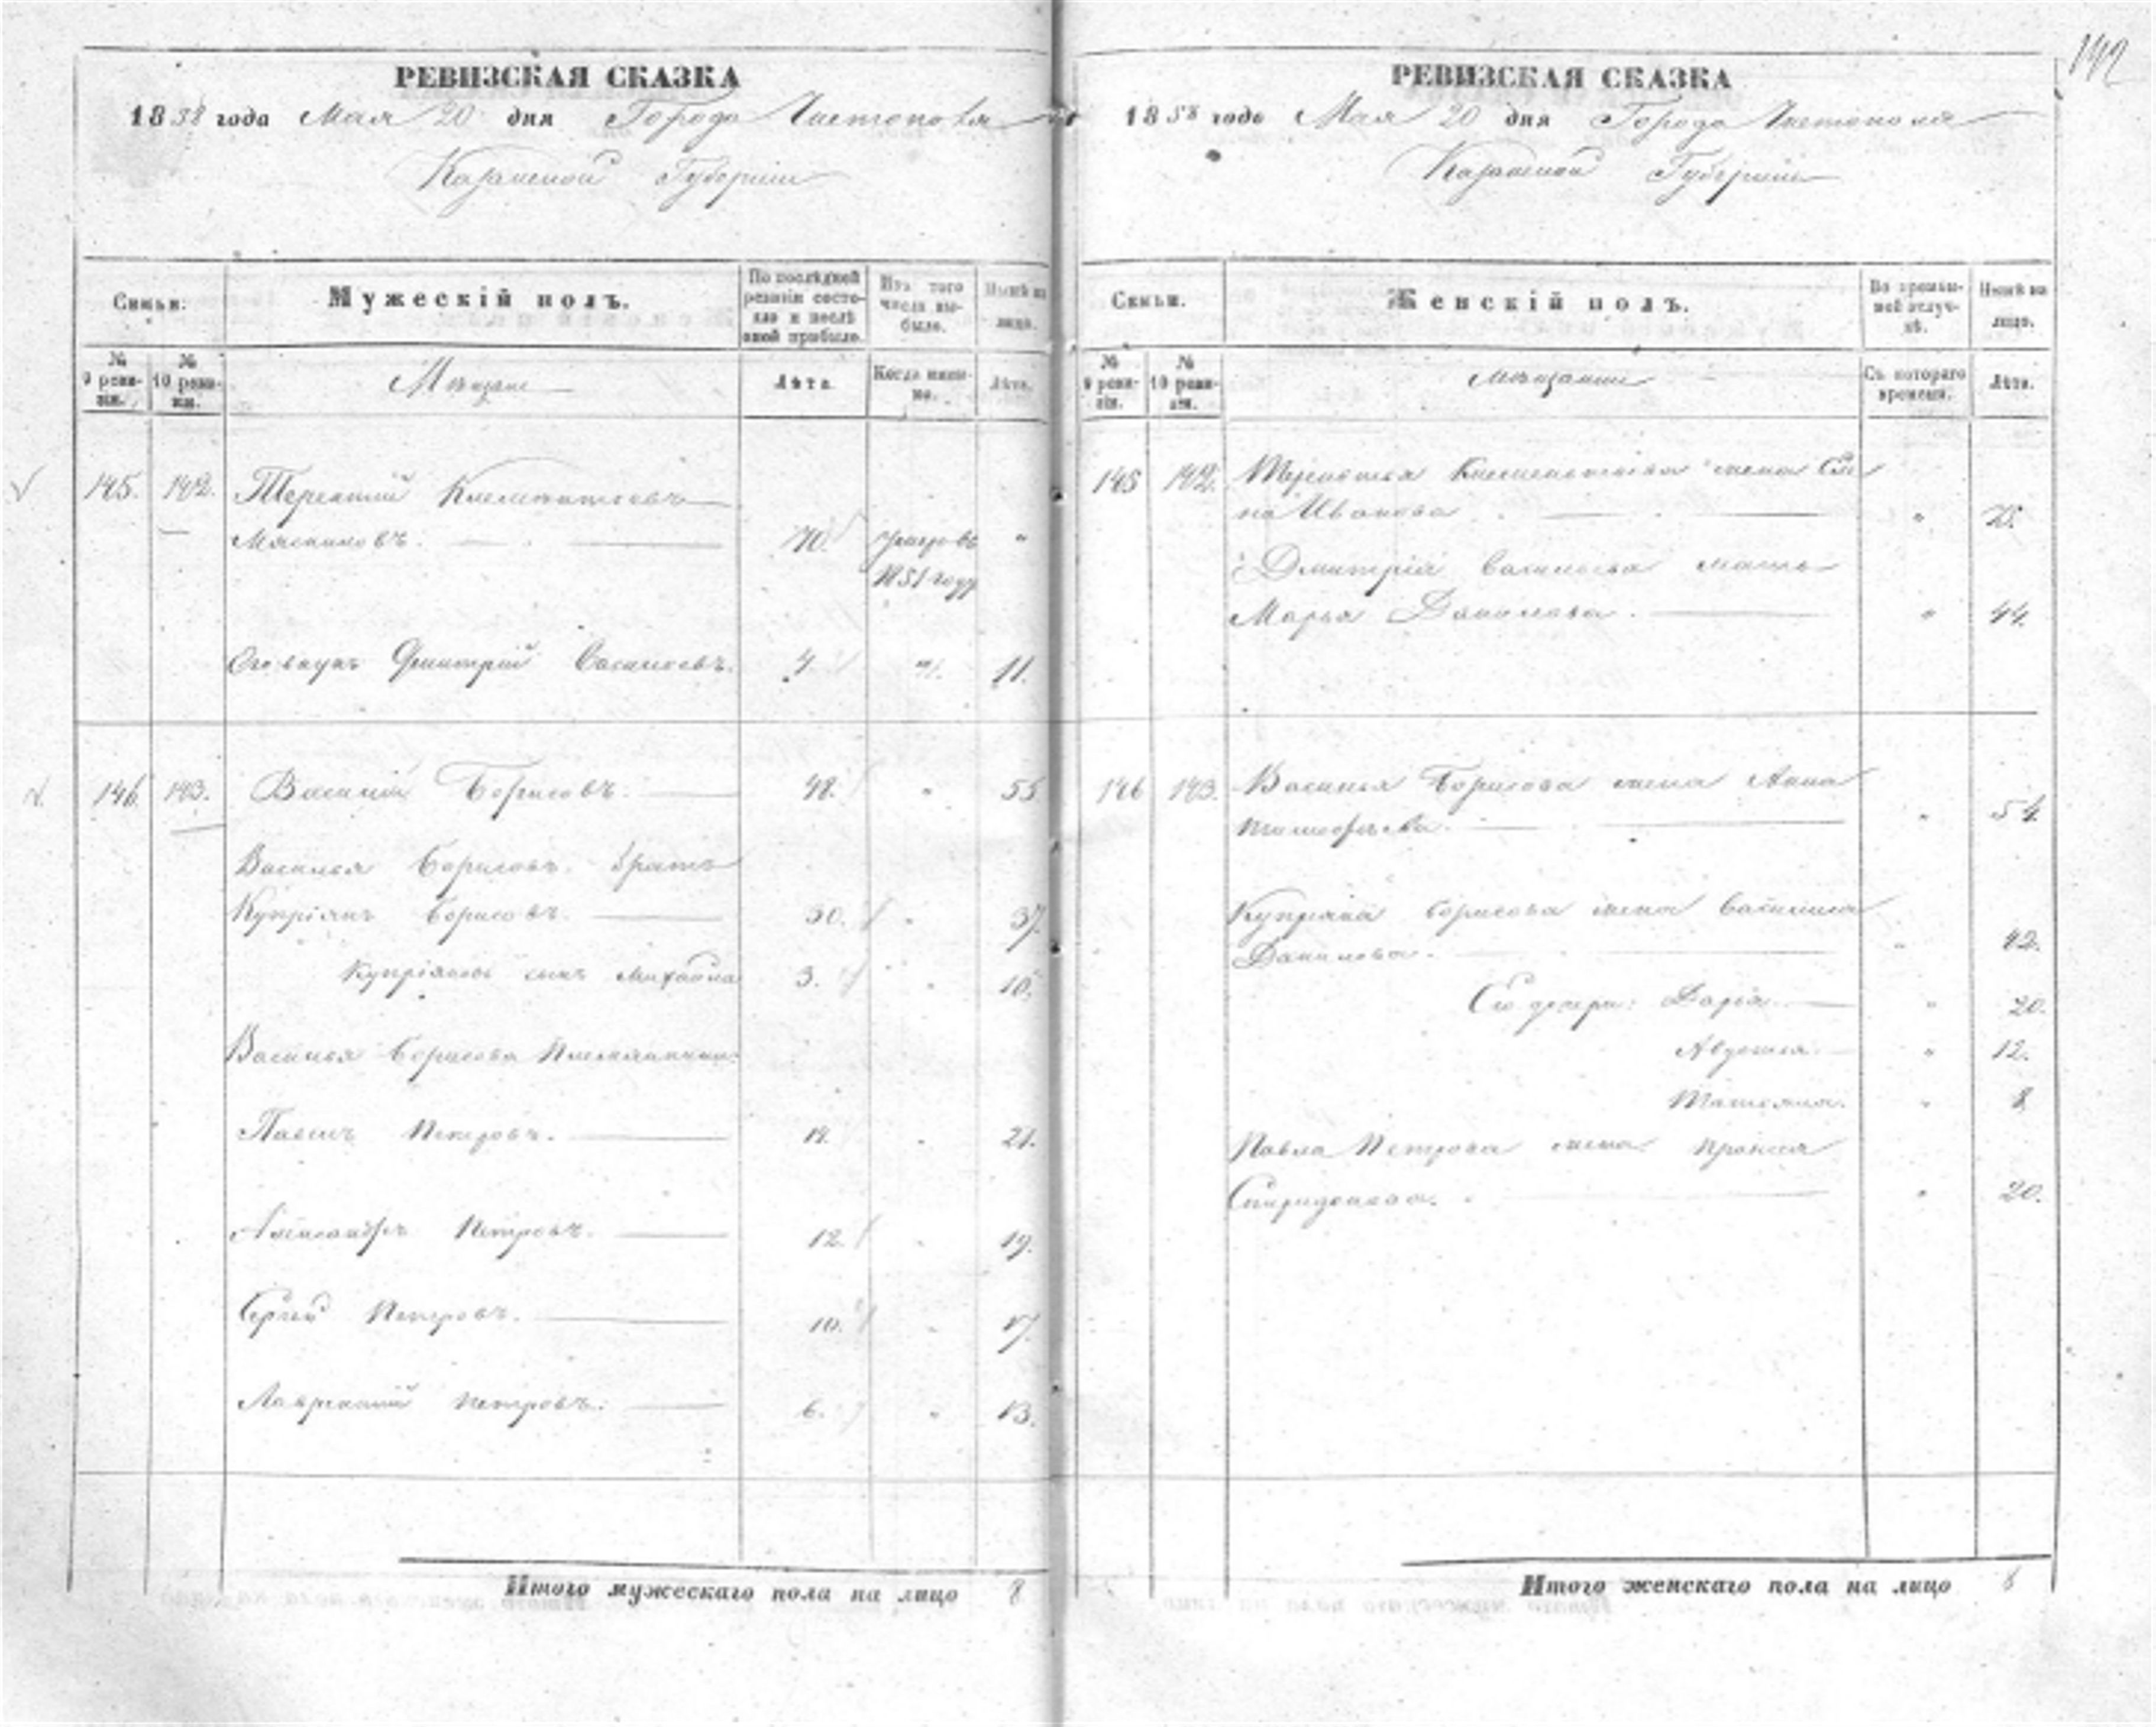 142
РЕВИЗСКАЯ СКАЗКА
1858 года Мая 20 дня Города Чистополя
Казанской Губернии
Семьи.
Мужескій полъ.
По послѣдней ревизіи состояло и послѣ оной прибыло.
Изъ того числа выбыло.
Нынѣ на лицо.
№ 9 ревизіи.
№ 10 ревизіи.
Мѣщане
Лѣта.
Когда именно.
Лѣта.
145. 142. Терентий Клементьевъ
Мясниковъ. 70. умеръ въ "
1851 году
Его внукъ Дмитрий Васильевъ. 4. " 11.
146. 143. Василий Борисовъ. 48. " 55
Василья Борисова братъ
Купріянъ Борисовъ. 30. " 37.
Купріянова сынъ Михайла 3. " 10.
Василья Борисова племянники:
Павелъ Петровъ. 14. " 21.
Александръ Петровъ. 12. " 19.
Сергій Петровъ. 10. " 17.
Лаврентий Петровъ. 6. " 13.
Итого мужескаго пола на лицо 8
РЕВИЗСКАЯ СКАЗКА
1858 года Мая 20 дня Города Чистополя
Казанской Губернии
Семьи.
Женскій полъ.
Во временной отлучкѣ.
Нынѣ на лицо.
№ 9 ревизіи.
№ 10 ревизіи.
Мѣщанки
Съ котораго времени.
Лѣта.
145 142. Терентья Клементьева жена
Иванова "
Дмитрія Васильева мать
Марья Данилова. " 44.
146 143. Василья Борисова жена Анна
Тимофѣева. " 54.
Купріяна Борисова жена Василиса
Данилова. " 42.
Его дочери: Дарья " 20.
Авдотья " 12.
Татьяна. " 8
Павла Петрова жена
Спиридонова. " 20.
Итого женскаго пола на лицо 8